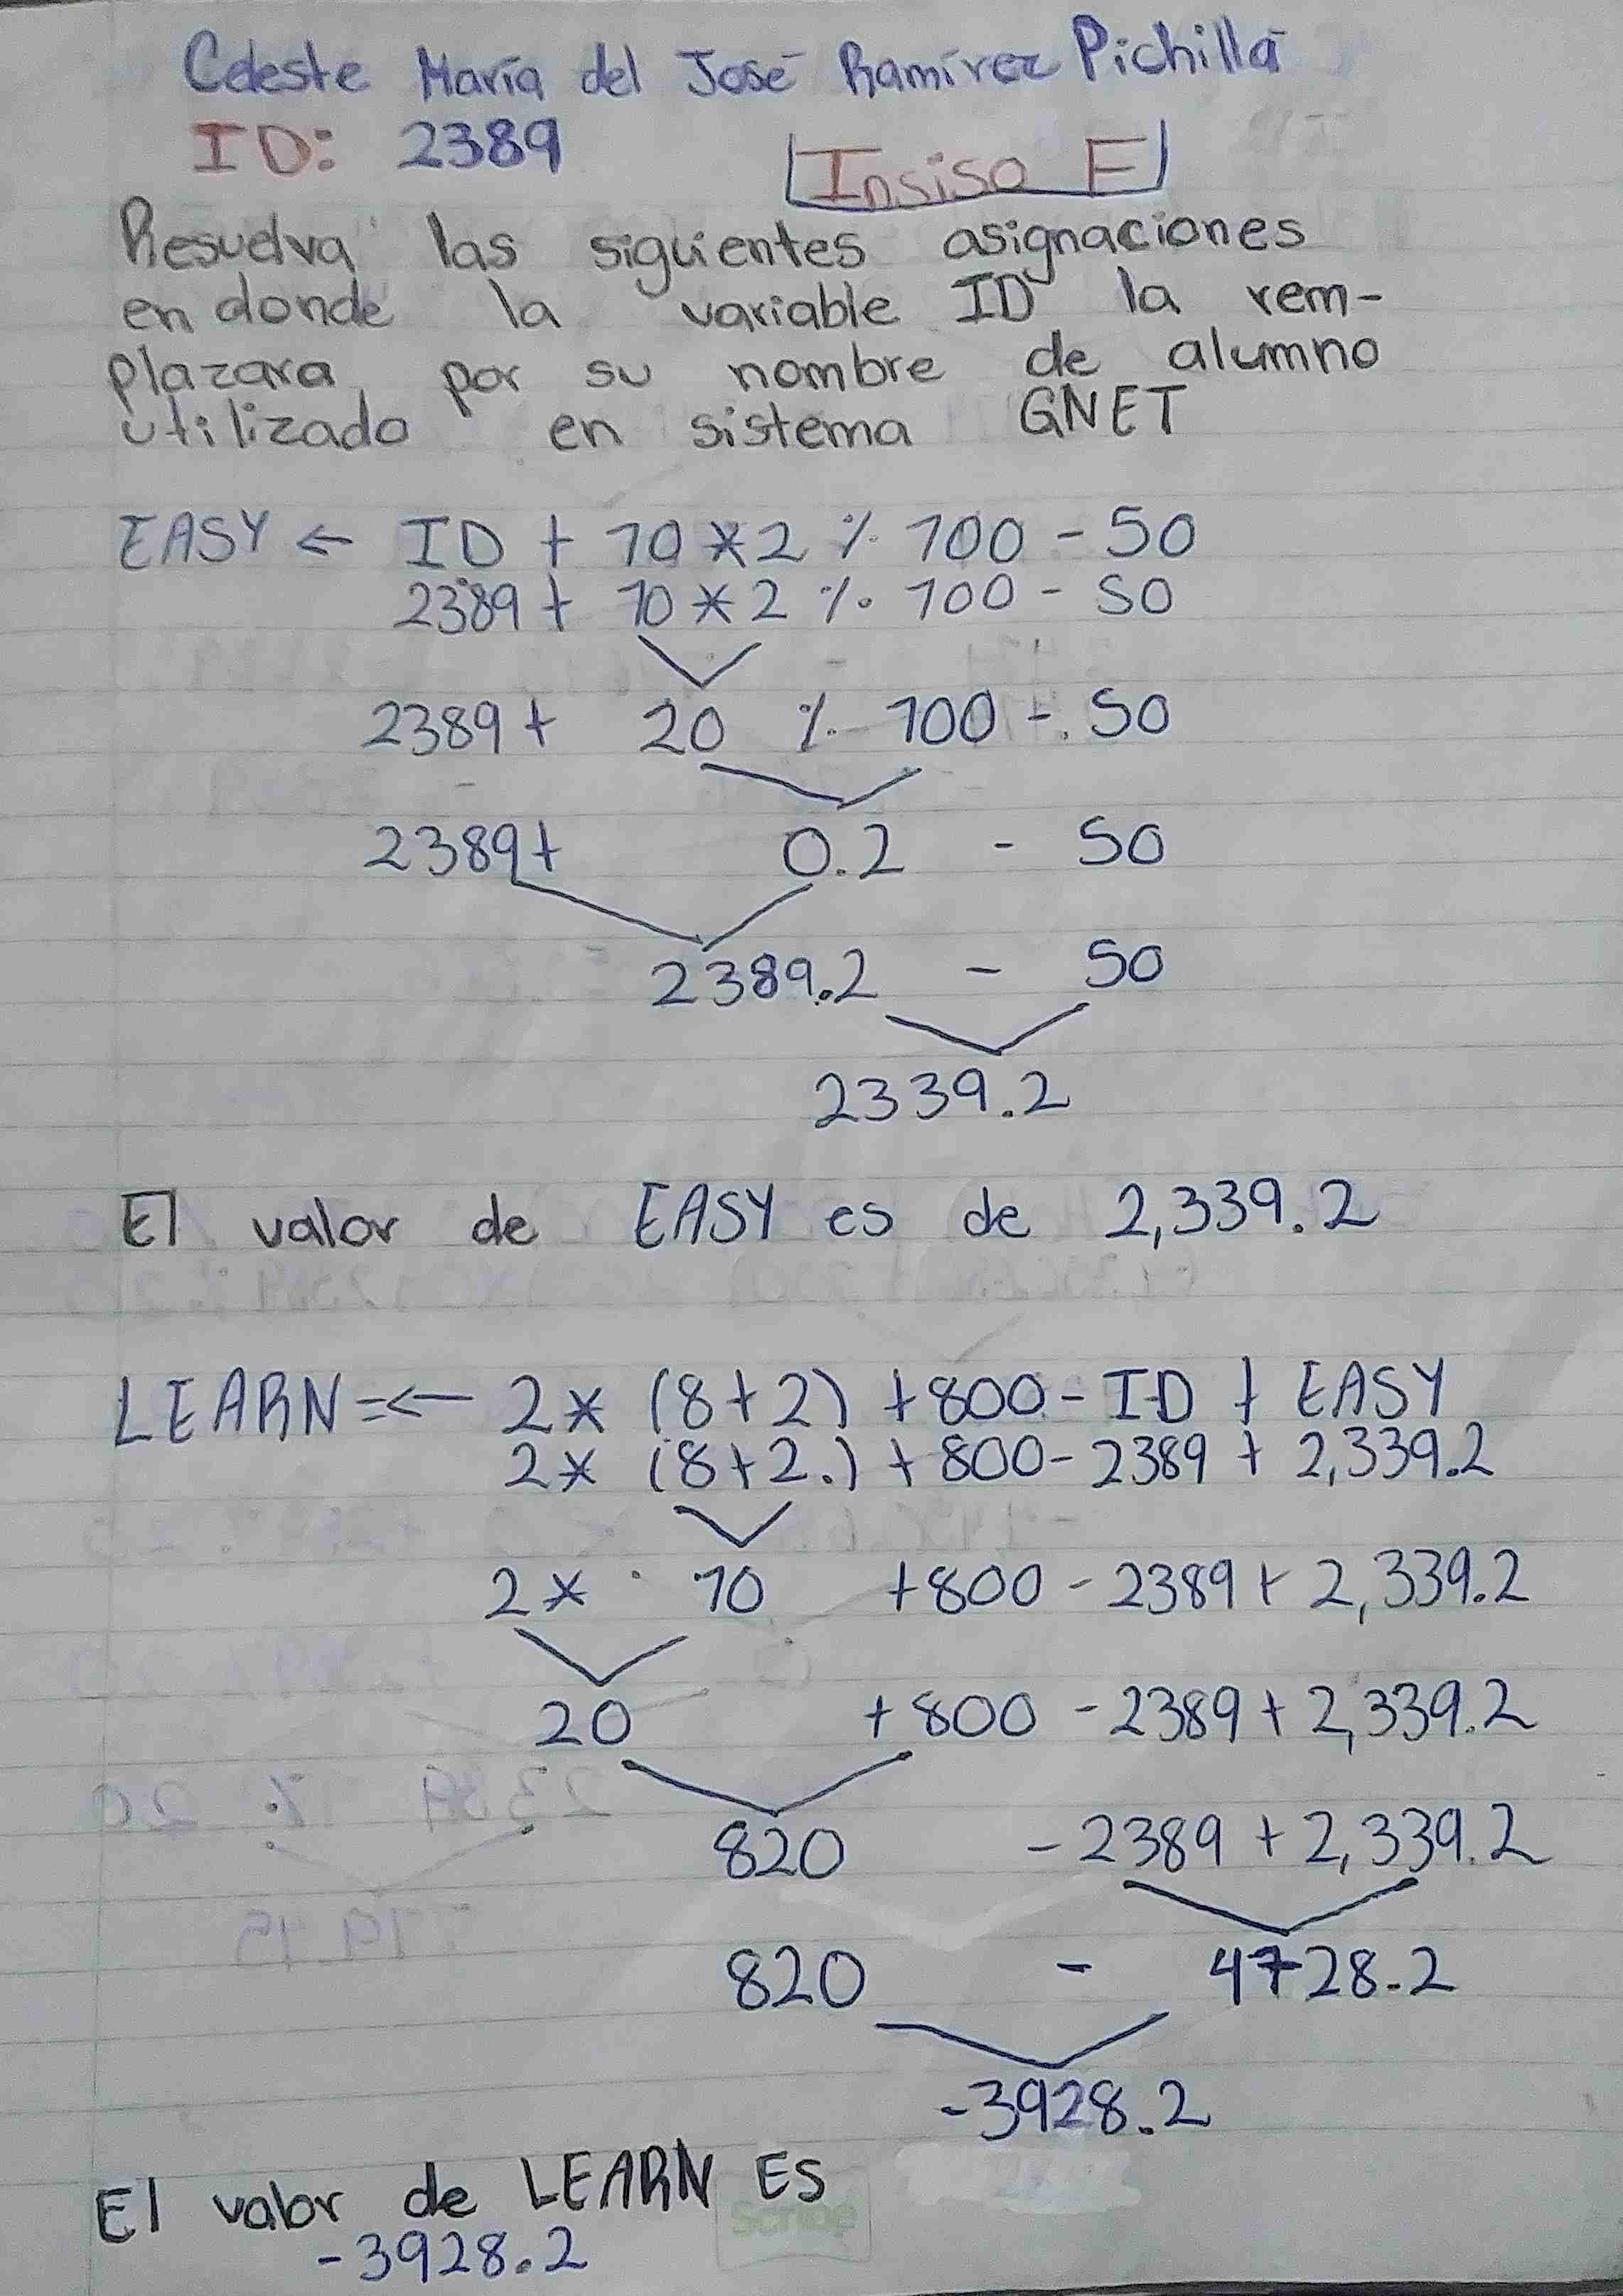 Celeste María del José Ramírez Pichillá
ID: 2389
Insiso E
Resuelva las siguientes asignaciones
en donde la variable ID la rem-
plazara por su nombre de alumno
utilizado en sistema GNET
EASY ← ID + 10 * 2 % 100 - 50
2389 + 10 * 2 % 100 - 50
2389 + 20 % 100 - 50
2389 + 0.2 - 50
2389.2 - 50
2339.2
El valor de EASY es de 2,339.2
LEARN =← 2 * (8+2) + 800 - ID + EASY
2 * (8+2.) + 800 - 2389 + 2,339.2
2 * 10 + 800 - 2389 + 2,339.2
20 + 800 - 2389 + 2,339.2
820 - 2389 + 2,339.2
820 - 4728.2
-3928.2
El valor de LEARN ES
-3928.2
Scribe